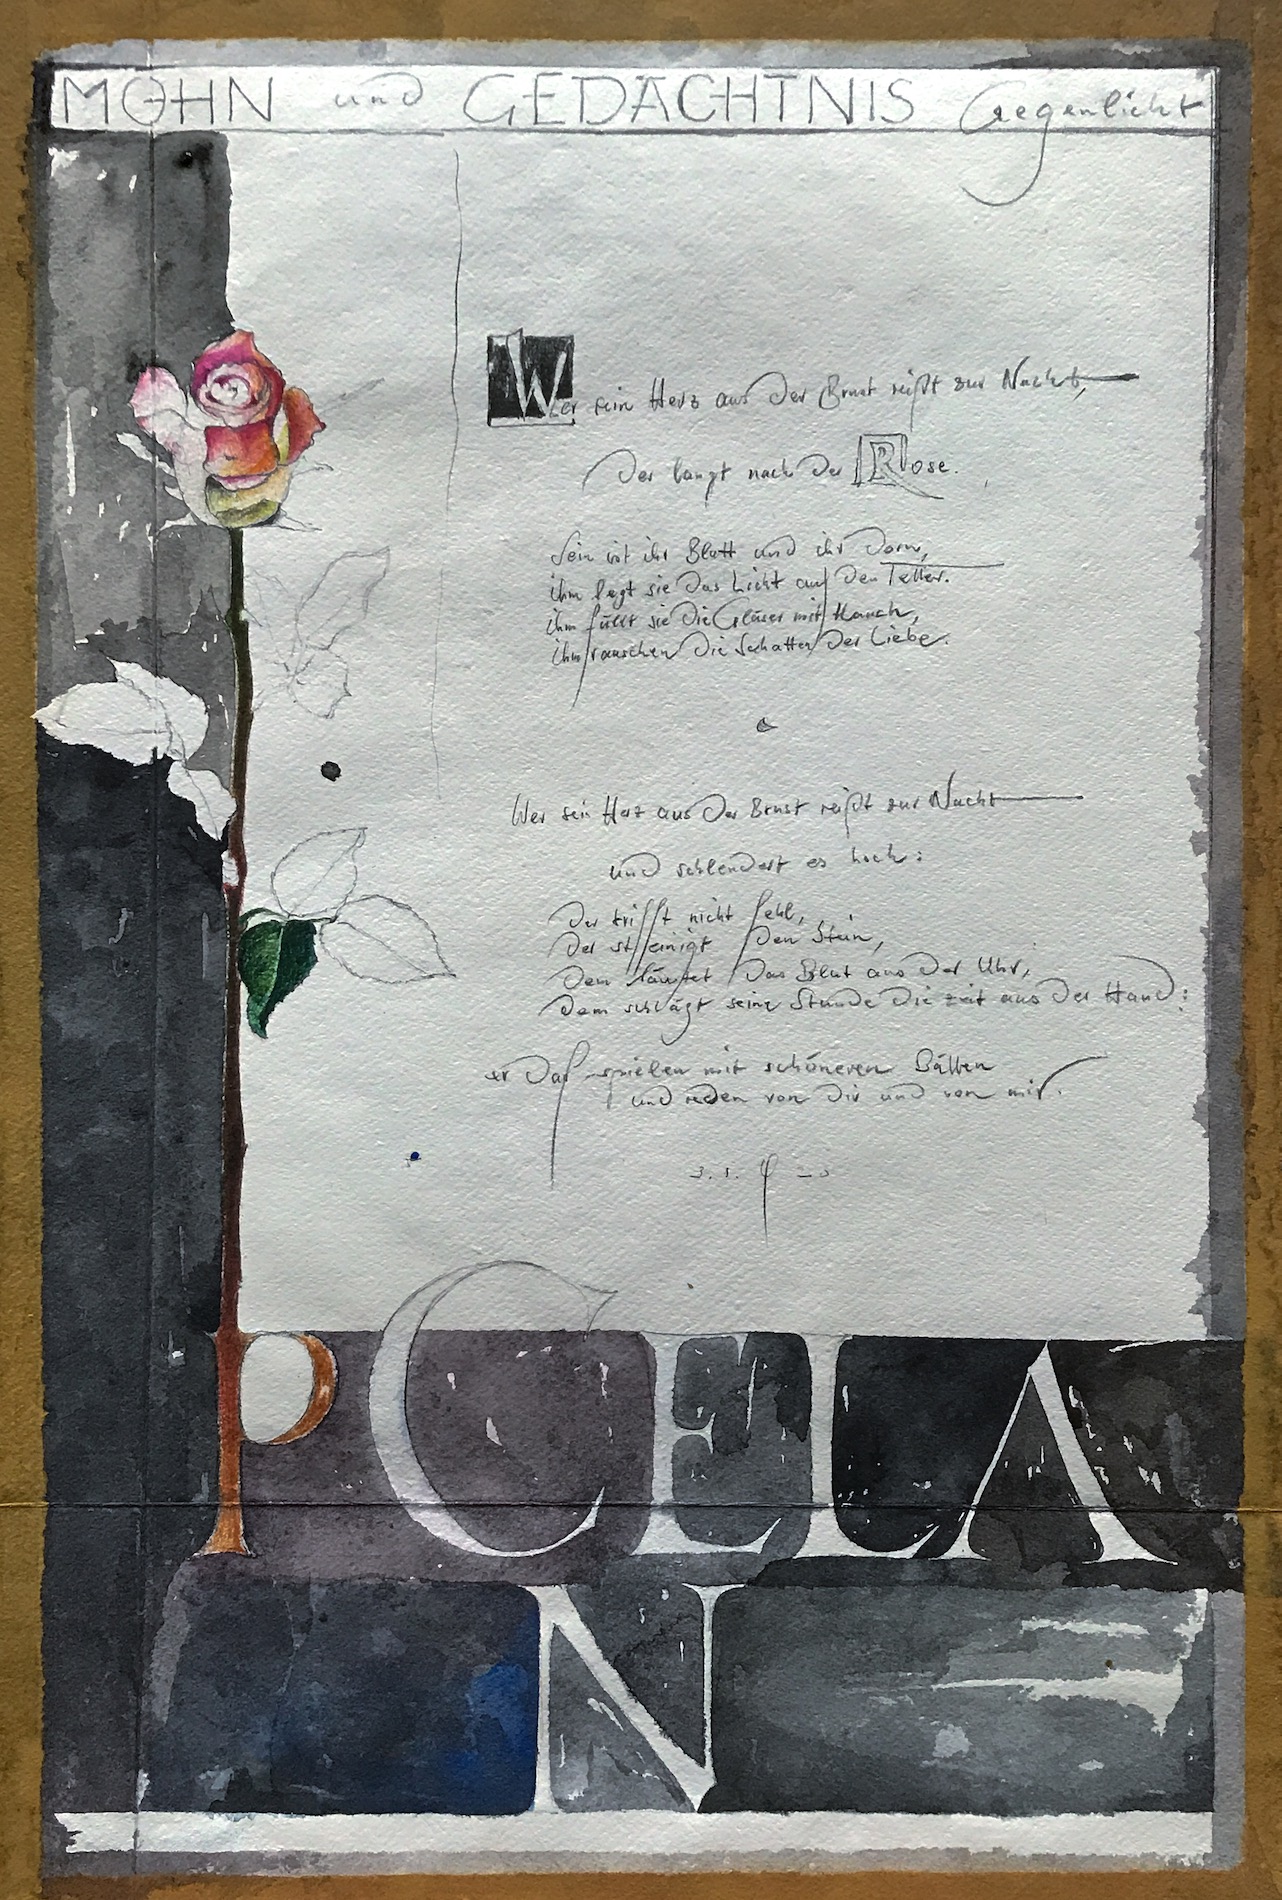 MOHN und GEDÄCHTNIS Gegenlicht
Wer sein Herz aus der Brust reißt zur Nacht,
der langt nach der Rose.
Sein ist ihr Blatt und ihr Dorn,
ihm legt sie das Licht auf den Teller,
ihm füllt sie die Gläser mit Hauch,
ihm rauschen die Schatten der Liebe.
Wer sein Herz aus der Brust reißt zur Nacht
und schleudert es hoch:
der trifft nicht fehl,
der steinigt den Stein,
dem läutet das Blut aus der Uhr,
dem schlägt seine Stunde die Zeit aus der Hand:
er darf spielen mit schöneren Bällen
und reden von dir und von mir.
3. 1.
P CELA
N